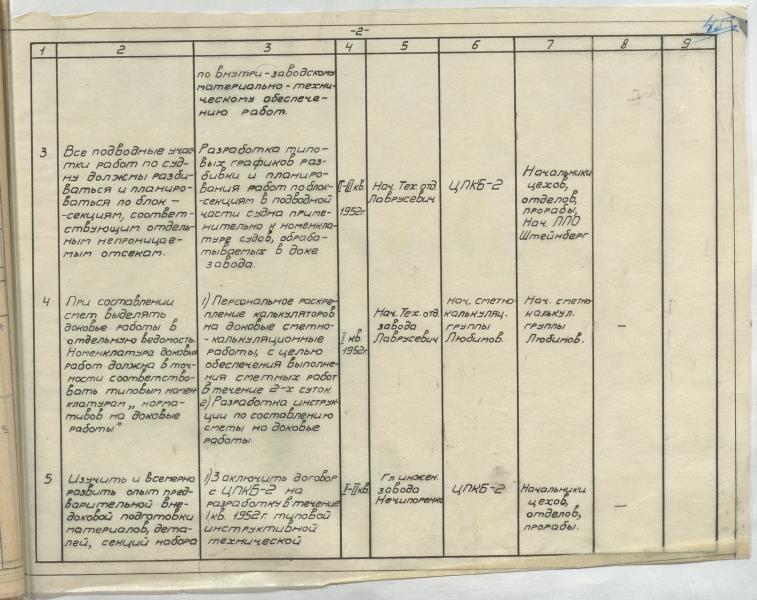 -2-
1 2 3 4 5 6 7 8 9
по внутри-заводскому
материально-техни-
ческому обеспече-
нию работ.
3
Все подводные учас-
тки работ по суд-
ну должны разби-
ваться и планиро-
ваться по блок-
-секциям, соответ-
ствующим отдель-
ным непроницае-
мым отсекам.
Разработка типо-
вых графиков раз-
бивки и планиро-
вания работ по блок-
-секциям в подводной
части судна приме-
нительно к номенкла-
туре судов, обраба-
тываемых в доке
завода.
II-III кв.
1952г.
Нач. Тех. отд.
Лаврусевич
ЦПКБ-2
Начальники
цехов,
отделов,
прорабы,
Нач. ППО
Штейнберг
4
При составлении
смет выделять
доковые работы в
отдельную ведомость.
Номенклатура доковых
работ должна в точ-
ности соответство-
вать типовым номен-
клатурам „норма-
тивов на доковые
работы."
1) Персональное раскре-
пление калькуляторов
на доковые сметно-
-калькуляционные
работы, с целью
обеспечения выполне-
ния сметных работ
в течение 2-х суток.
2) Разработка инструк-
ции по составлению
сметы на доковые
работы.
I кв.
1952г.
Нач. Тех. отд.
завода
Лаврусевич
Нач. сметно-
калькуляц.
группы
Любимов.
Нач. сметно
калькул.
группы
Любимов.
–
5
Изучить и всемерно
развить опыт пред-
варительной вне-
доковой подготовки
материалов, дета-
лей, секций набора
1) Заключить договор
с ЦПКБ-2 на
разработку в течение
I кв. 1952г. типовой
инструктивной
технической
I-II кв.
Гл. инжен.
завода
Нечипоренко
ЦПКБ-2
Начальники
цехов,
отделов,
прорабы.
–